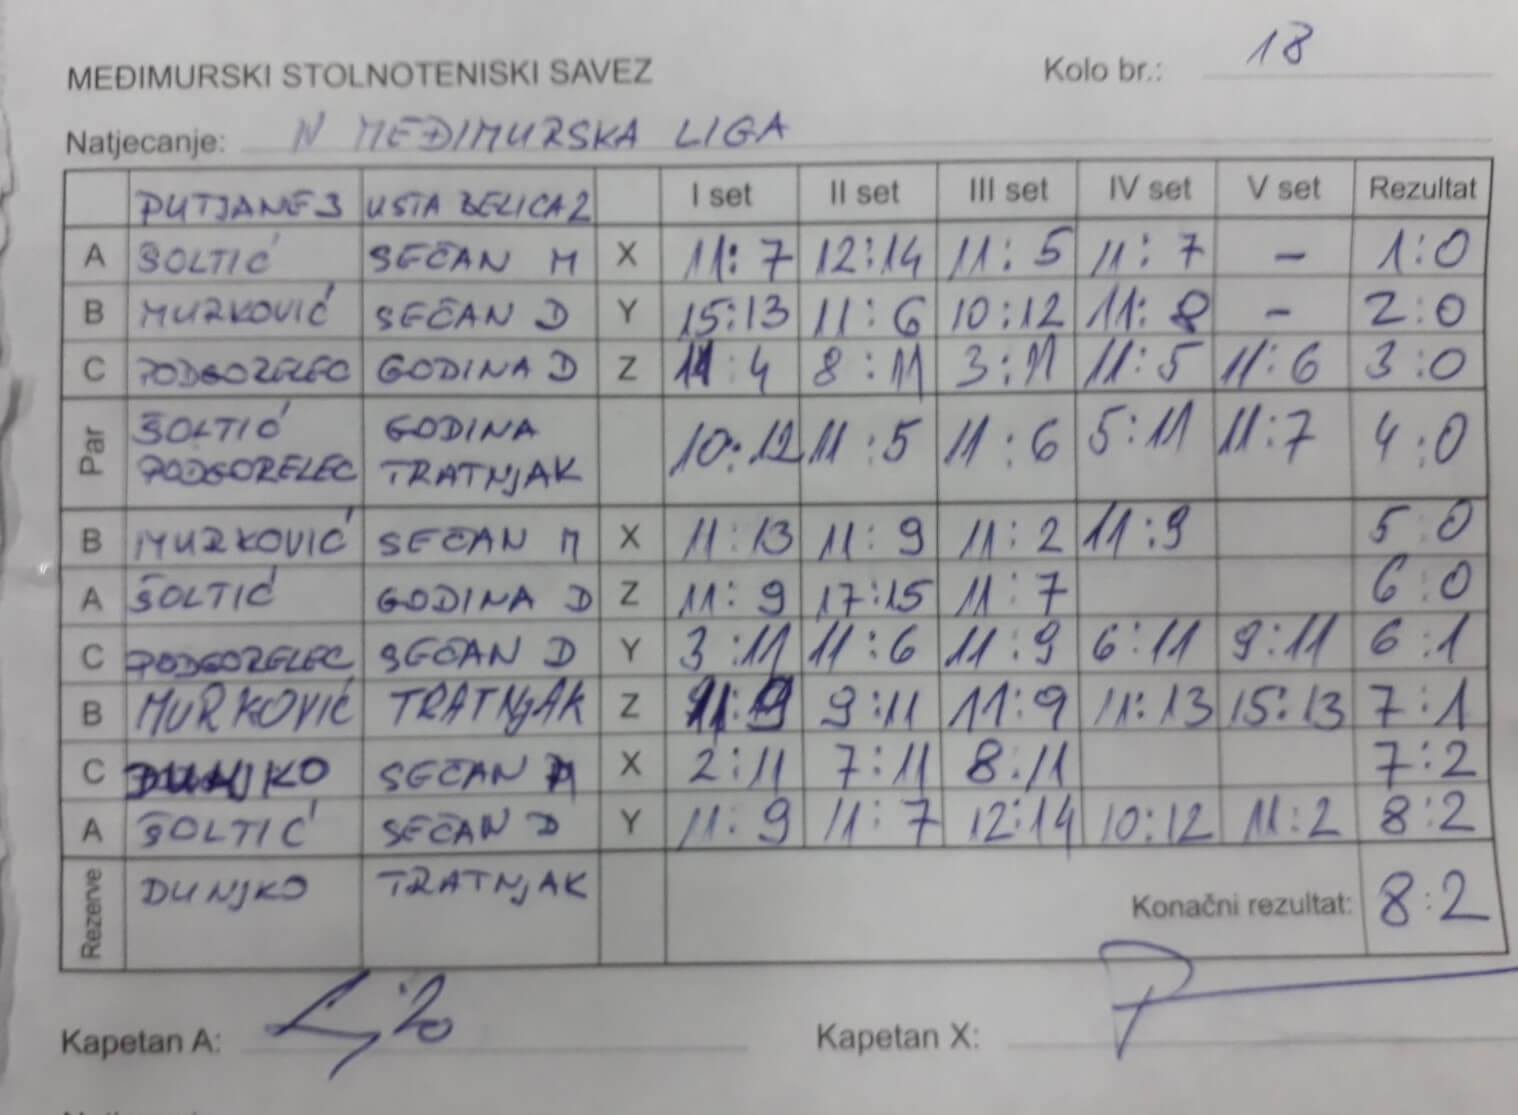 MEĐIMURSKI STOLNOTENISKI SAVEZ Kolo br.: 18
Natjecanje: IV MEĐIMURSKA LIGA
PUTJANE 3 USTA BELICA 2 I set II set III set IV set V set Rezultat
A ŠOLTIĆ SEČAN M X 11:7 12:14 11:5 11:7 - 1:0
B MURKOVIĆ SEČAN D Y 15:13 11:6 10:12 11:8 - 2:0
C PODGORELEC GODINA D Z 11:4 8:11 3:11 11:5 11:6 3:0
Par ŠOLTIĆ GODINA 10:12 11:5 11:6 5:11 11:7 4:0
PODGORELEC TRATNJAK
B MURKOVIĆ SEČAN M X 11:13 11:9 11:2 11:9 5:0
A ŠOLTIĆ GODINA D Z 11:9 17:15 11:7 6:0
C PODGORELEC SEČAN D Y 3:11 11:6 11:9 6:11 9:11 6:1
B MURKOVIĆ TRATNJAK Z 11:9 9:11 11:9 11:13 15:13 7:1
C DUNJKO SEČAN M X 2:11 7:11 8:11 7:2
A ŠOLTIĆ SEČAN D Y 11:9 11:7 12:14 10:12 11:2 8:2
Rezerve DUNJKO TRATNJAK Konačni rezultat: 8:2
Kapetan A: Kapetan X: